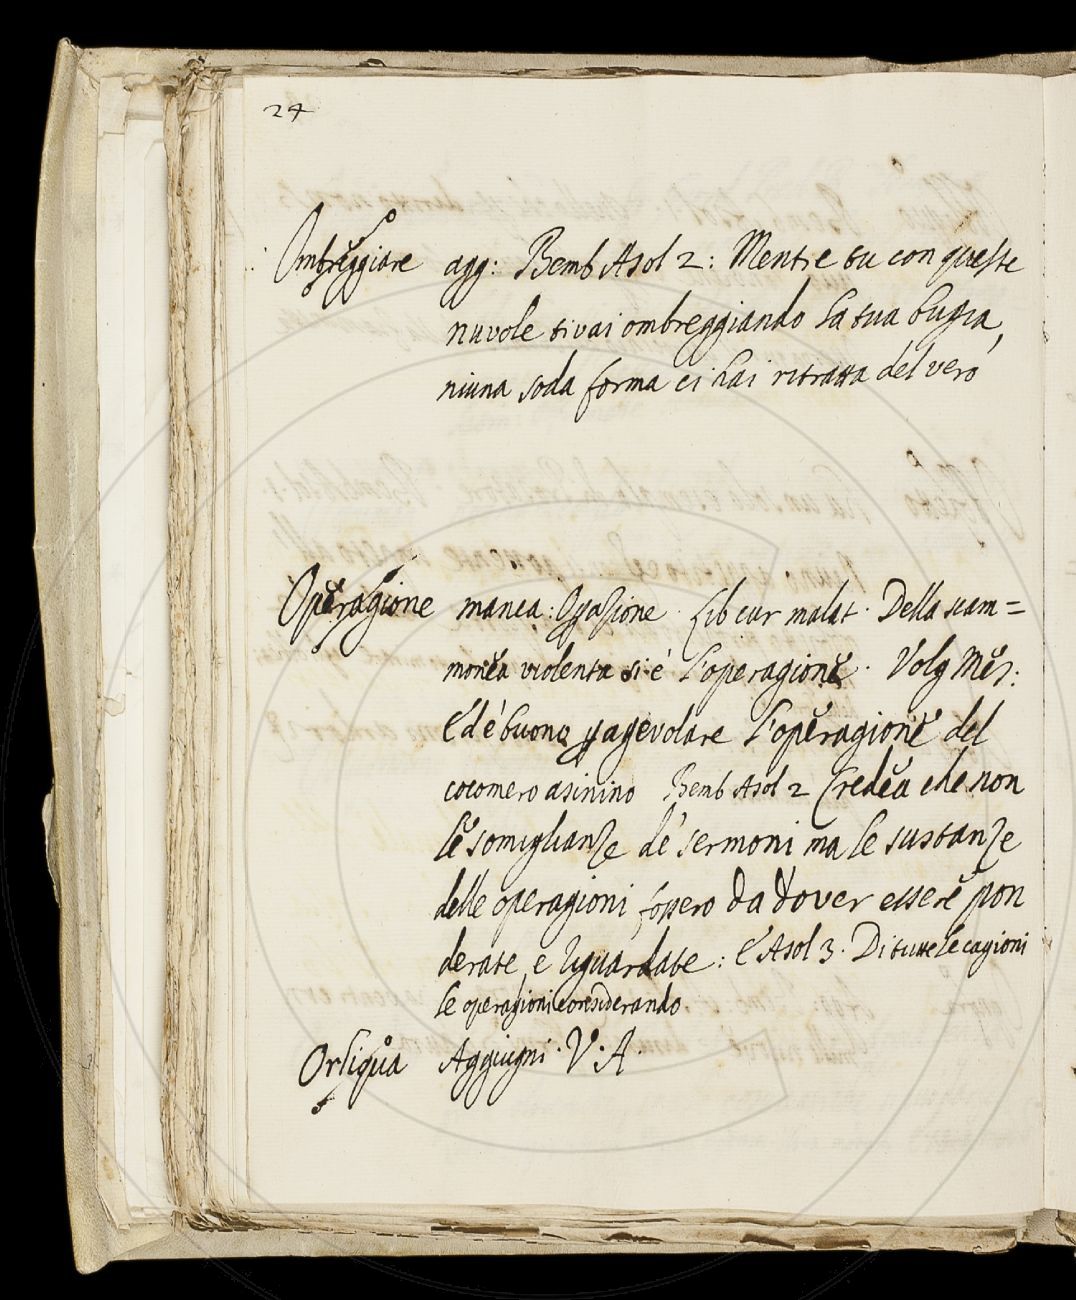 24
Ombreggiare agg: Bemb Asol 2: Mentre tu con queste
nuvole ti vai ombreggiando la tua bugia,
niuna soda forma ci hai ritratta del vero
Operagione manca: Lib cur malat. Della scam=
monea violenta si è l'operagione. Volg Mes:
Ed è buono agevolare l'operagione del
cocomero asinino Bemb Asol 2 Credea che non
le somiglianze de' sermoni ma le sustanze
delle operagioni fossero da dover essere pon
derate e riguardate: E Asol 3. Di tutte le cagioni
le operagioni considerando.
Orliqua Aggiugni. V: A.